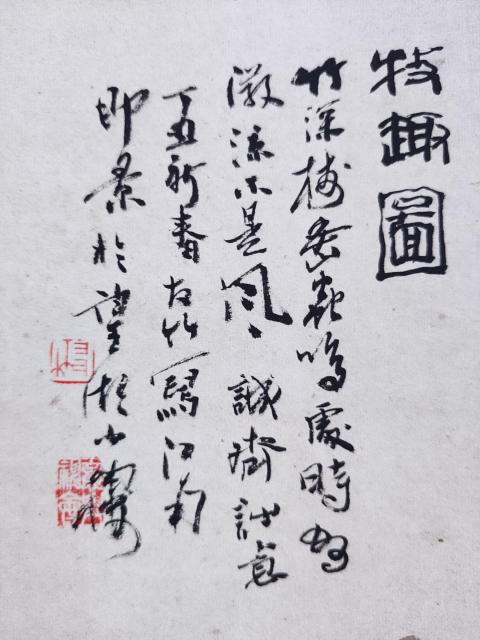 牧趣圖
竹深樹密蟲鳴處時有
微涼不是風 誠齋詩意
丁丑新春 竹寫江南
即景於望湖小樓